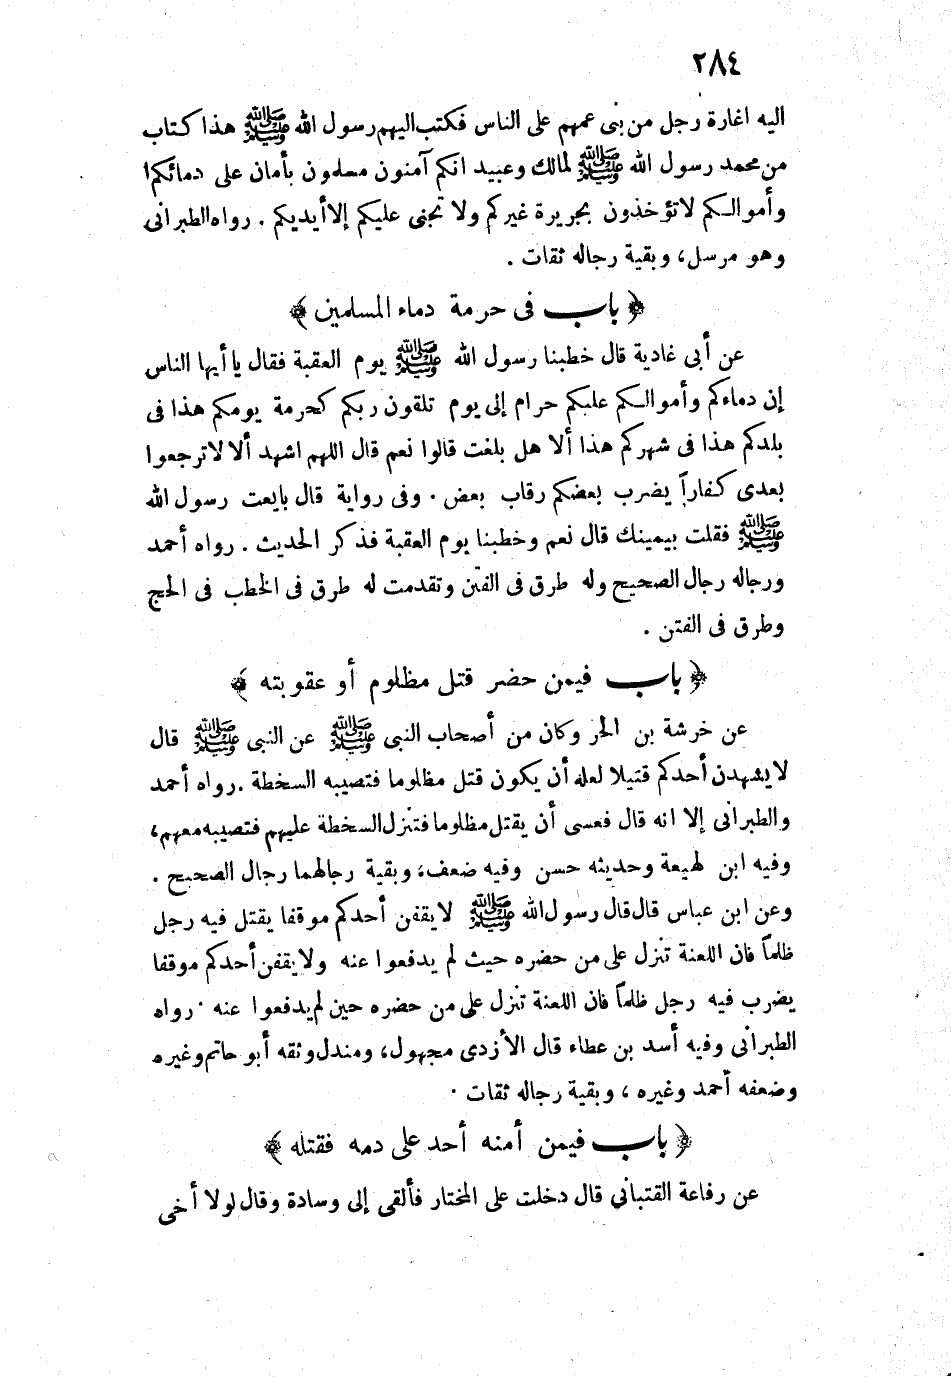 ٢٨٤
اليه اغارة رجل من بنى عمهم على الناس فكتب اليهم رسول الله ﷺ هذا كتاب
من محمد رسول الله ﷺ لمالك وعبيد انكم آمنون مسلمون بأمان على دمائكم ا
وأموالكم لا تؤخذون بجريرة غيركم ولا تجنى عليكم إلا أيديكم . رواه الطبرانى
وهو مرسل، وبقية رجاله ثقات .
﴿ باب فى حرمة دماء المسلمين ﴾
عن أبى غادية قال خطبنا رسول الله ﷺ يوم العقبة فقال يا أيها الناس
إن دماءكم وأموالكم عليكم حرام إلى يوم تلقون ربكم كحرمة يومكم هذا فى
بلدكم هذا فى شهركم هذا ألا هل بلغت قالوا نعم قال اللهم اشهد ألا لا ترجعوا
بعدى كفاراً يضرب بعضكم رقاب بعض . وفى رواية قال بايعت رسول الله
ﷺ فقلت بيمينك قال نعم وخطبنا يوم العقبة فذكر الحديث . رواه أحمد
ورجاله رجال الصحيح وله طرق فى الفتن وتقدمت له طرق فى الخطب فى الحج
وطرق فى الفتن .
﴿ باب فيمن حضر قتل مظلوم أو عقوبته ﴾
عن خرشة بن الحر وكان من أصحاب النبى ﷺ عن النبى ﷺ قال
لا يشهدن أحدكم قتيلا لعله أن يكون قتل مظلوما فتصيبه السخطة . رواه أحمد
والطبرانى إلا انه قال فعسى أن يقتل مظلوما فتنزل السخطة عليهم فتصيبه معهم،
وفيه ابن لهيعة وحديثه حسن وفيه ضعف، وبقية رجالهما رجال الصحيح .
وعن ابن عباس قال قال رسول الله ﷺ لا يقفن أحدكم موقفا يقتل فيه رجل
ظلماً فان اللعنة تنزل على من حضره حيث لم يدفعوا عنه ولا يقفن أحدكم موقفا
يضرب فيه رجل ظلماً فان اللعنة تنزل على من حضره حين لم يدفعوا عنه . رواه
الطبرانى وفيه أسد بن عطاء قال الأزدى مجهول، ومندل وثقه أبو حاتم وغيره
وضعفه أحمد وغيره ، وبقية رجاله ثقات .
﴿ باب فيمن أمنه أحد على دمه فقتله ﴾
عن رفاعة القتبانى قال دخلت على المختار فألقى إلى وسادة وقال لولا أخى